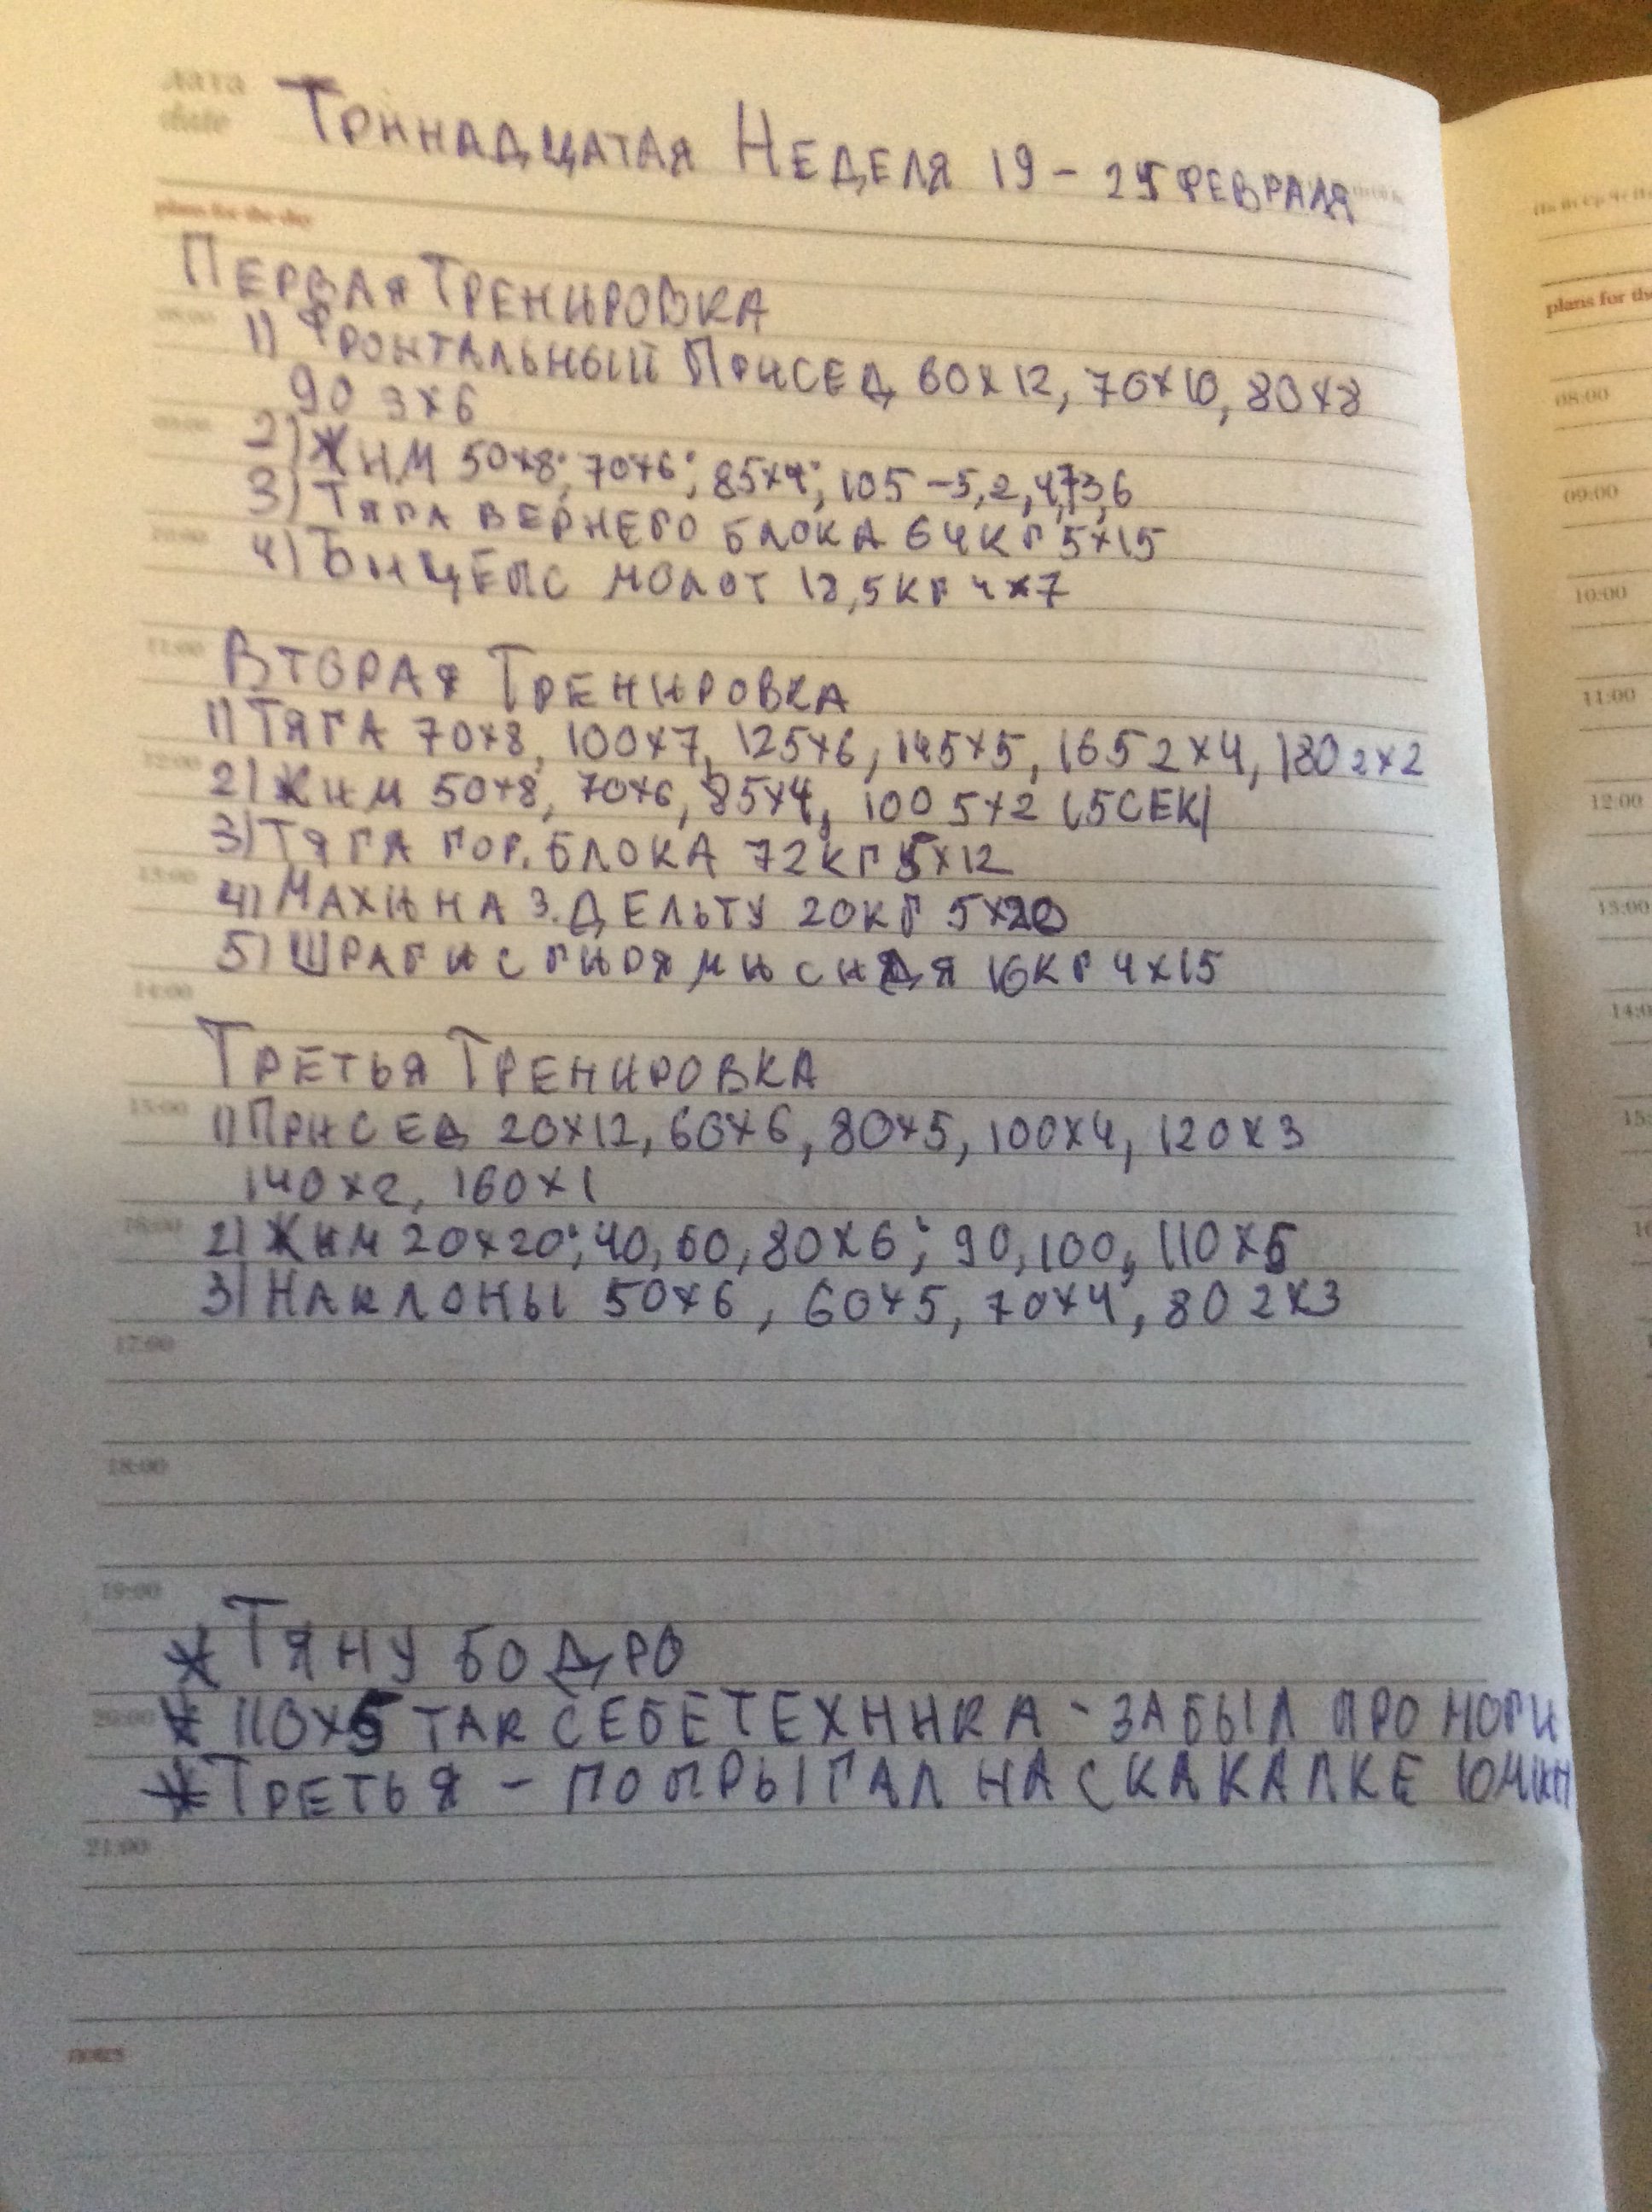 дата
date
Триннадцатая Неделя 19 - 25 февраля
plans for the day
Первая Тренировка
1) Фронтальный Присед 60х12, 70х10, 80х8
90 3х6
2) Жим 50х8; 70х6; 85х4; 105 - 5, 2, 4, 3, 6
3) Тяга вернего блока 64кг 5х15
4) Бицепс молот 18,5кг 4х7
11:00
Вторая Тренировка
1) Тяга 70х8, 100х7, 125х6, 145х5, 165 2х4, 180 2х2
12:00
2) Жим 50х8, 70х6, 85х4, 100 5х2 (5сек)
3) Тяга гор. блока 72кг 5х12
13:00
4) Махи на з. дельту 20кг 5х20
5) Шраги с гирями сидя 16кг 4х15
14:00
Третья Тренировка
15:00
1) Присед 20х12, 60х6, 80х5, 100х4, 120х3
140х2, 160х1
16:00
2) Жим 20х20; 40, 60, 80х6; 90, 100, 110х5
3) Наклоны 50х6, 60х5, 70х4, 80 2х3
17:00
18:00
19:00
* Тяну бодро
20:00
* 110х5 так себе техника - забыл про ноги
* Третья - попрыгал на скакалке 10мин
21:00
notes
plans for the
08:00
09:00
10:00
11:00
12:00
13:00
14:0
15: